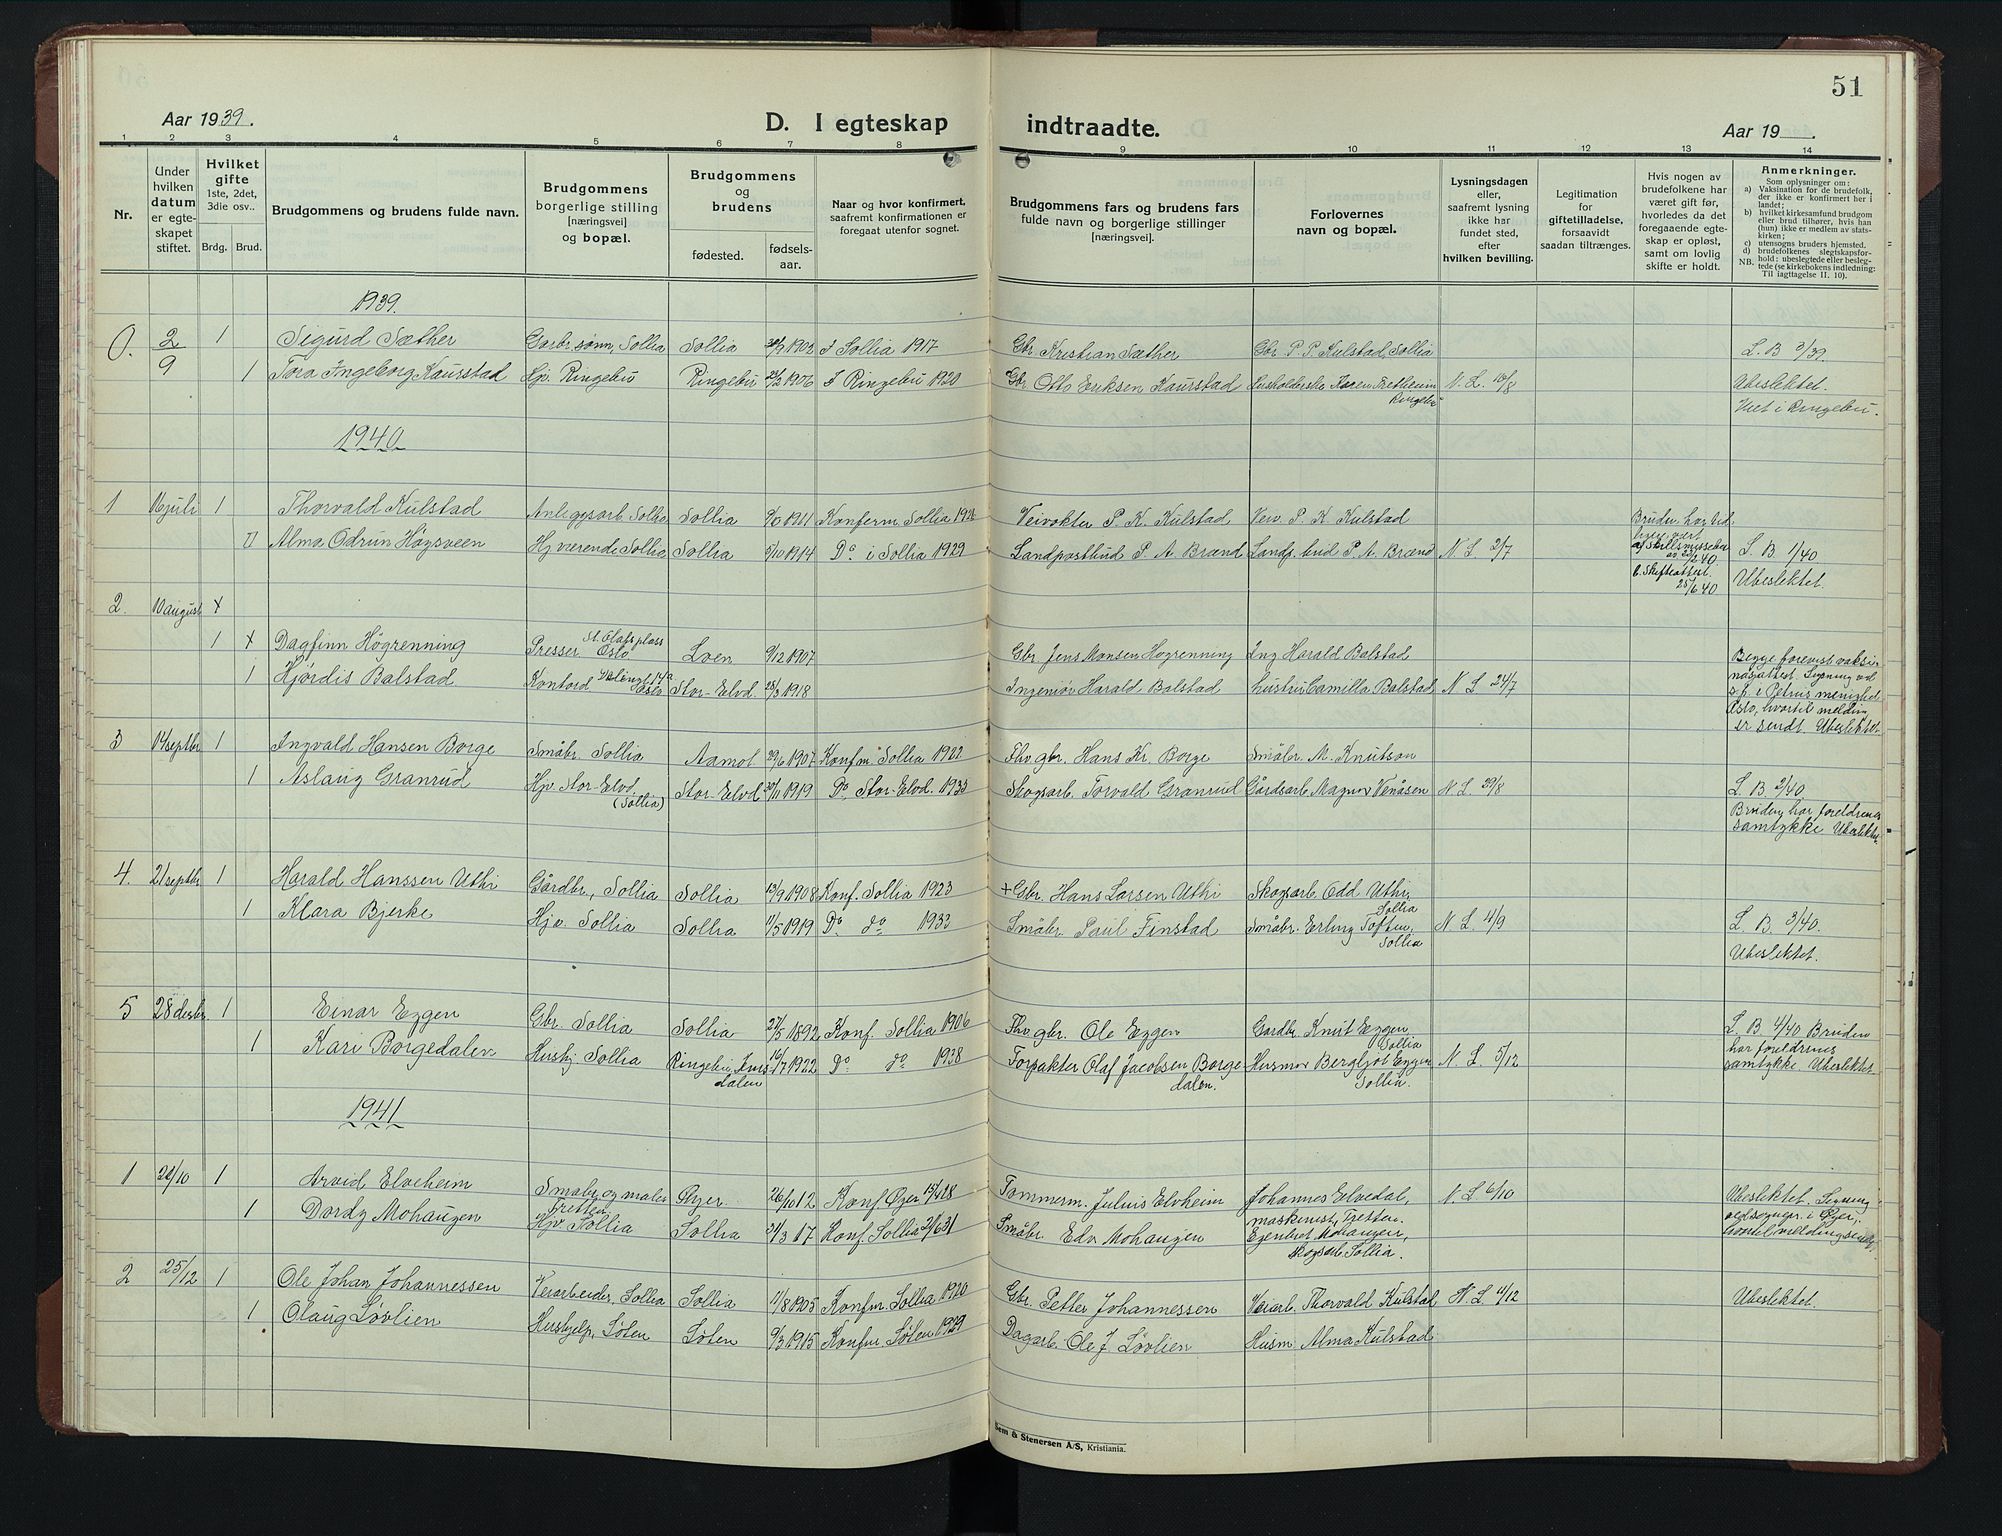 51
Aar 1939.
D. I egteskap indtraadte.
Aar 19 .
1 2 3 4 5 6 7 8 9 10 11 12 13 14
Nr.
Under
hvilken
datum
er egte-
skapet
stiftet.
Hvilket
gifte
1ste, 2det,
3die osv..
Brdg. Brud.
Brudgommens og brudens fulde navn.
Brudgommens
borgerlige stilling
[næringsvei]
og bopæl.
Brudgommens
og
brudens
fødested.
fødsels-
aar.
Naar og hvor konfirmert,
saafremt konfirmationen er
foregaat utenfor sognet.
Brudgommens fars og brudens fars
fulde navn og borgerlige stillinger
[næringsvei].
Forlovernes
navn og bopæl.
Lysningsdagen
eller,
saafremt lysning
ikke har
fundet sted,
efter
hvilken bevilling.
Legitimation
for
giftetilladelse,
forsaavidt
saadan tiltrænges.
Hvis nogen av
brudefolkene har
været gift før,
hvorledes da det
foregaaende egte-
skap er opløst,
samt om lovlig
skifte er holdt.
Anmerkninger.
Som oplysninger om:
a) Vaksination for de brudefolk,
der ikke er konfirmert her i
landet;
b) hvilket kirkesamfund brudgom
eller brud tilhører, hvis han
(hun) ikke er medlem av stats-
kirken;
c) utensogns bruders hjemsted.
d) brudefolkenes slegtskapsfor-
hold: ubeslegtede eller besleg-
NB. tede (se kirkebokens indledning:
Til iagttagelse II. 10).
1939.
0. 2/9 1 Sigurd Sæther Gårbr.sønn, Sollia Sollia 1903 I Sollia 1917 Gbr. Kristian Sæther Gbr. P. P. Kulstad, Sollia L. B. 3/39.
1 Tora Ingeborg Kaurstad Hjv. Ringebu Ringebu 1906 I Ringebu 1920 Gbr Otto Eriksen Kaurstad Karen Tretheim N. L. 16/8 Ubeslektet.
Ringebu
Viet i Ringebu.
1940
1 16 juli 1 Thorvald Kulstad Anleggsarb. Sollia Sollia 1911 Konferm. Sollia 1926 Veivokter P. K. Kulstad Veiv. P. K. Kulstad
Alma Odrun Høysveen Hjværende Sollia Sollia 5/10 1914 Do i Sollia 1929 Landpostbud P. A. Brænd Landp. bud P. A. Brænd N L 2/7 L. B. 1/40
b. Skifteattest.
25/6 40 Ubeslektet.
2. 10 august +
1 + Dagfinn Høgrenning Presser St. Olafs plass
Oslo Loen 9/12 1907 Gbr. Jens Monsen Høgrenning Ing Harald Balstad
1 Hjørdis Balstad Kontord. Oslo Stor-Elvd. 25/3 1918 Ingeniør Harald Balstad hustru Camilla Balstad N L 24/7
Begge forevist vaksi-
nasjattest. Lysning ved
s.p. i Petrus menighed
Oslo, hvortil melding
er sendt. Ubeslektet.
3 14 septbr 1 Ingvald Hansen Borge Småbr. Sollia Aamot 29/6 1907 Konfm. Sollia 1922 Fhv. gbr. Hans Kr. Borge Småbr. M. Knutson
1 Aslaug Granrud Hjv. Stor-Elvd. Stor-Elvd 1919 Do Stor-Elvd. 1933 Skogsarb. Torvald Granrud Gårdsarb. Magnor Venåsen N L. 29/8 L. B 2/40
(Sollia)
Bruden har foreldrenes
samtykke Ubeslektet.
4. 21 septbr 1 Harald Hanssen Uthi Gårdbr., Sollia Sollia 13/9 1908 Konf. Sollia 1923 + Gbr. Hans Larsen Uthi Skogsarb. Odd Uthi,
Sollia
1 Klara Bjerke Hjv. Sollia Sollia 11/5 1919 Do do 1933 Småbr. Paul Finstad Småbr. Erling Toften,
Sollia N L. 4/9 L. B. 3/40.
Ubeslektet.
5 28 desbr. 1 Einar Eggen Gbr. Sollia Sollia 27/5 1892 Konf. Sollia 1906 Fhv. gbr. Ole Eggen Gårdbr. Knut Eggen,
Sollia L. B 4/40 Bruden
1 Kari Borgedalen Hushj. Sollia Ringebu, Ims-
dalen 16/7 1922 Do do 1938 Forpakter Olaf Jacobsen Borge
dalen. Husmor Bergljot Eggen
Sollia. N L. 5/12 har foreldrenes
samtykke Ubeslektet.
1941
1 22/10 1 Arvid Elveheim Småbr. og maler
Tretten Øyer 26/10 12 Konf. Øyer 15/4 28 Tømmerm. Julius Elvheim Johannes Elvedal,
maskinist, Tretten. N L 6/10 Ubeslektet.
1 Dordy Mohaugen Hjv. Sollia Sollia 31/3 17 Konf. Sollia 21/6 31 Småbr. Edv Mohaugen Mohaugen,
Skogsarb. Sollia.
2 25/12 1 Ole Johan Johannessen Veiarbeider, Sollia Sollia 11/8 1905 Konfm. Sollia 1920 Gbr. Petter Johannessen Veiarb. Thorvald Kulstad N L 4/12 Ubeslektet.
1 Olaug Løvlien Hushjelp, Søten Søten 9/3 1915 Konfm. Søten 1929 Dagarb. Ole J Løvlien Husm. Alma Kulstad
Sem & Stenersen A/S, Kristiania.